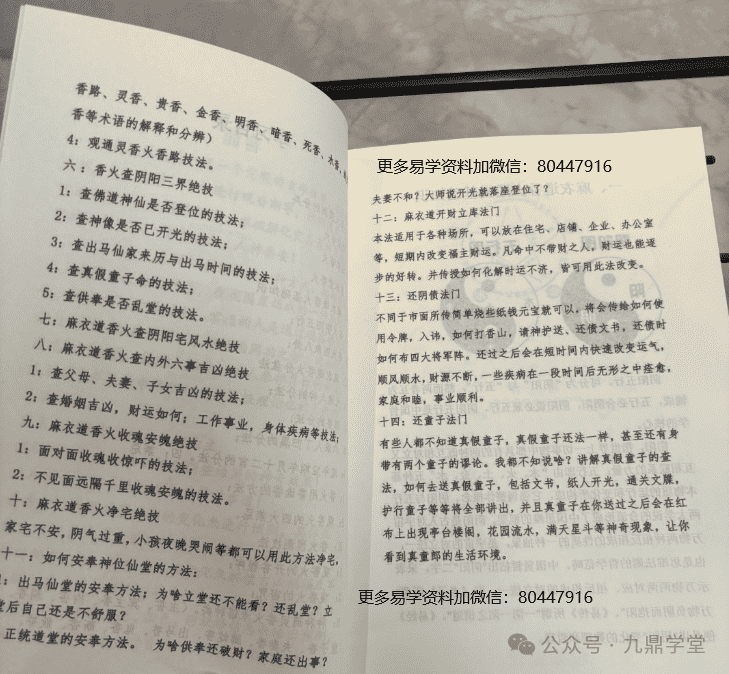 香路、灵香、贵香、金香、明香、暗香、死香、木香、
香等术语的解释和分辨）
4：观通灵香火香路技法。
六：香火查阴阳三界绝技
1：查佛道神仙是否登位的技法；
2：查神像是否已开光的技法；
3：查出马仙家来历与出马时间的技法；
4：查真假童子命的技法；
5：查供奉是否乱堂的技法。
七：麻衣道香火查阴阳宅风水绝技
八：麻衣道香火查内外六事吉凶绝技
1：查父母、夫妻、子女吉凶的技法；
2：查婚姻吉凶，财运如何；工作事业，身体疾病等技法；
九：麻衣道香火收魂安魄绝技
1：面对面收魂收惊吓的技法；
2：不见面远隔千里收魂安魄的技法。
十：麻衣道香火净宅绝技
家宅不安，阴气过重，小孩夜晚哭闹等都可以用此方法净宅，
十一：如何安奉神位仙堂的方法：
：出马仙堂的安奉方法；为啥立堂还不能看？还乱堂？立
堂后自己还是不舒服？
正统道堂的安奉方法。 为啥供奉还破财？家庭还出事？
更多易学资料加微信：80447916
夫妻不和？大师说开光就落座登位了？
十二：麻衣道开财立库法门
本法适用于各种场所，可以放在住宅、店铺、企业、办公室
等，短期内改变福主财运，凡命中不带财之人，财运也能逐
步的好转。并传授如何化解时运不济，皆可用此法改变。
十三：还阴债法门
不同于市面所传简单烧些纸钱元宝就可以，将会传给如何使
用令牌，入讳，如何打香山，请神护送、还债文书，还债时
如何布四大将军阵。还过之后会在短时间内快速改变运气，
顺风顺水，财源不断，一些疾病在一段时间后无形之中痊愈，
家庭和睦，事业顺利。
十四：还童子法门
有些人都不知道真假童子，真假童子还法一样，甚至还有身
带有两个童子的谬论。我都不知说啥？讲解真假童子的查
法，如何去送真假童子，包括文书，纸人开光，通关文牒，
护行童子等等将全部讲出，并且真童子在你送过之后会在红
布上出现亭台楼阁，花园流水，满天星斗等神奇现象，让你
看到真童郎的生活环境。
更多易学资料加微信：80447916
公众号·九鼎学堂